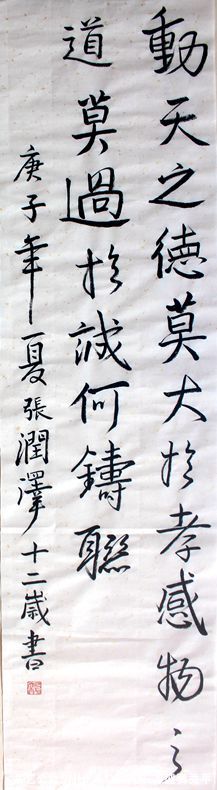 動天之德莫大於孝感物之
道莫過於誠何鑄聯
庚子年夏張潤澤十二歲書